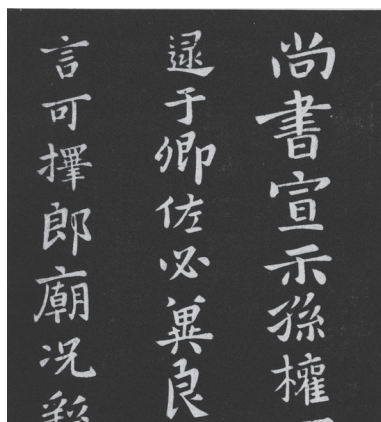 尚書宣示孫權
逮于卿佐必冀良
言可擇郎廟况